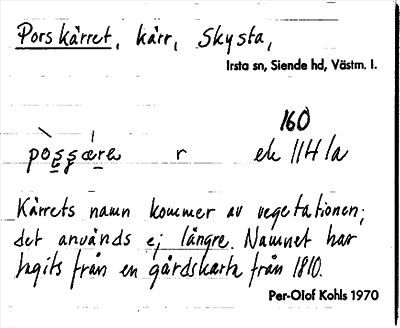 Porskärret, kärr, Skysta,
Irsta sn, Siende hd, Västm. l.
160
pòsʂæ̀ra r ek 11H1a
Kärrets namn kommer av vegetationen;
det används ej längre. Namnet har
tagits från en gårdskarta från 1810.
Per-Olof Kohls 1970